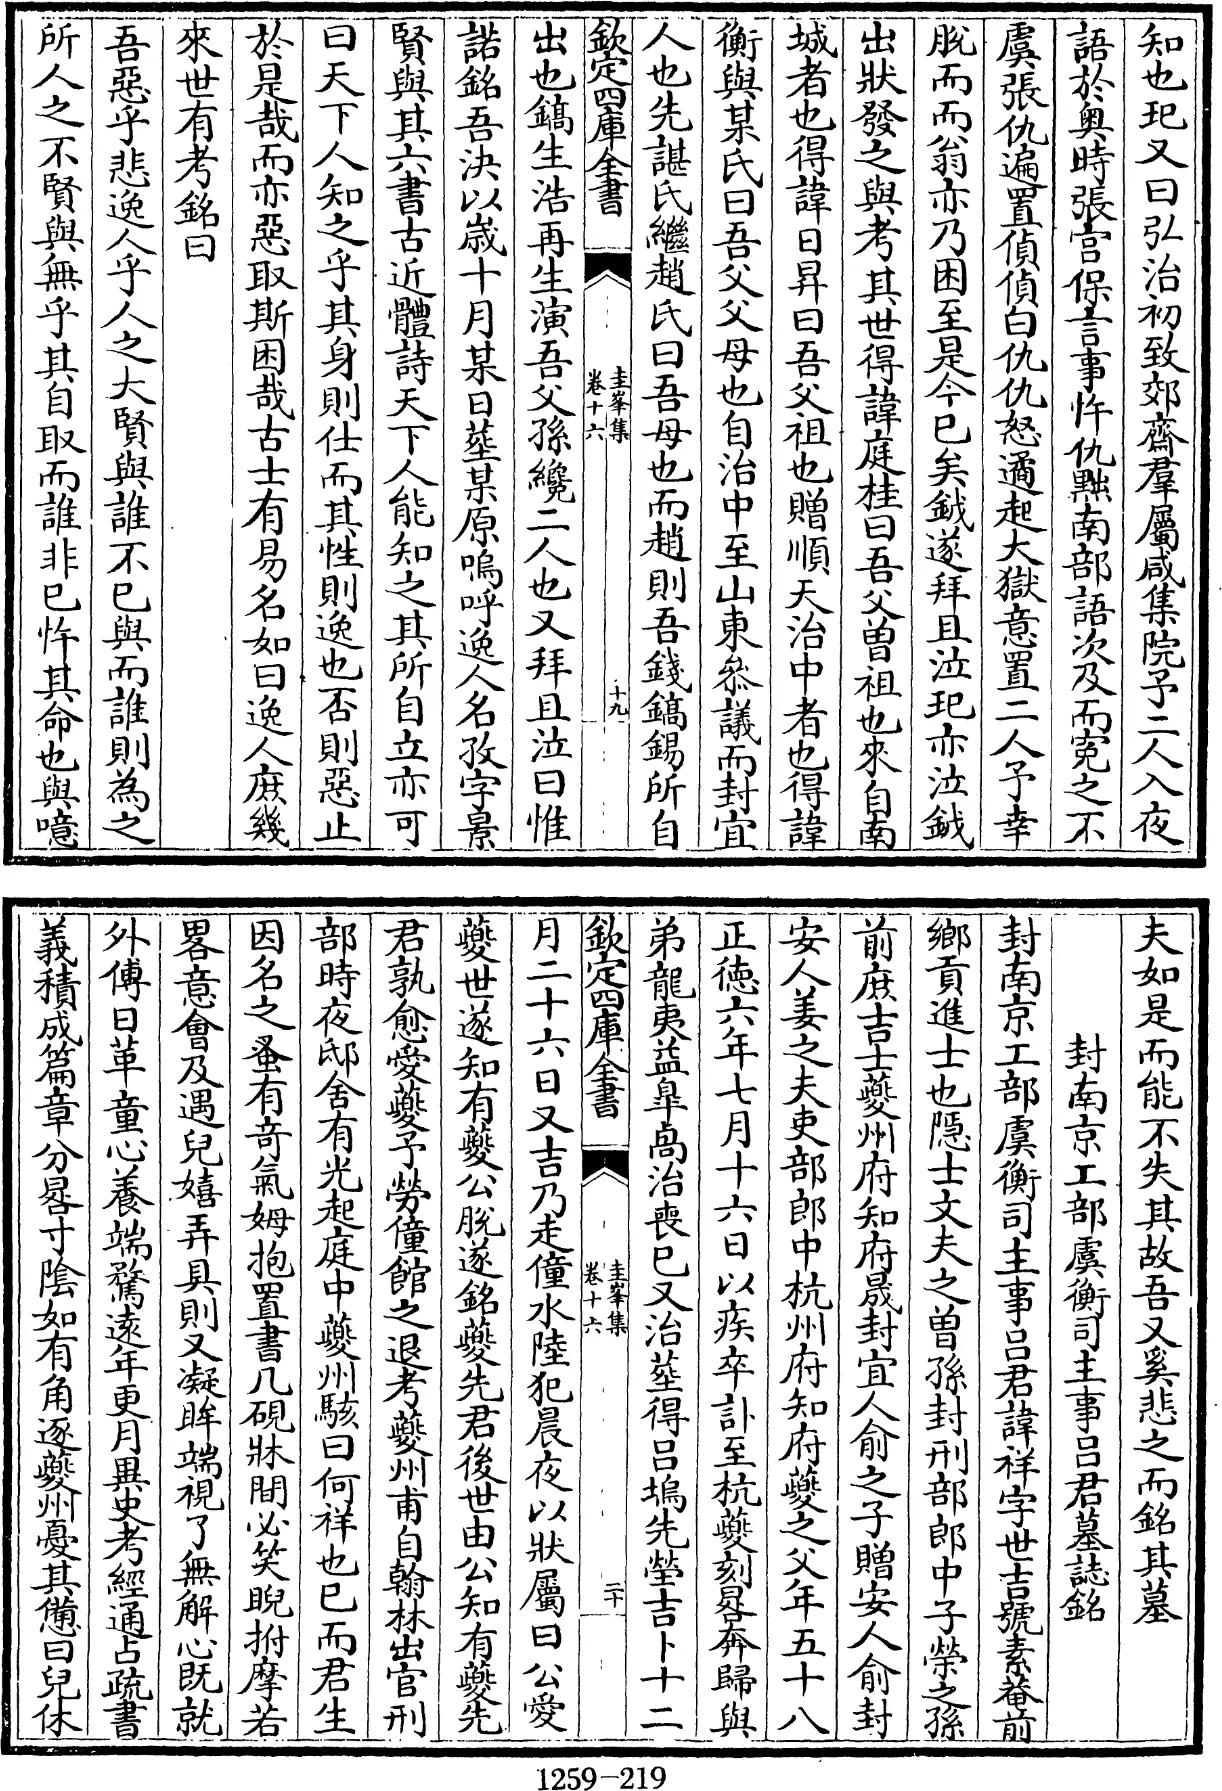 知也玘又曰弘治初致郊齋羣屬咸集院予二人入夜
語於奥時張宫保言事忤仇黜南部語次及而寃之不
虞張仇遍置偵偵白仇仇怒遹起大獄意置二人予幸
脱而而翁亦乃困至是今已矣鉞遂拜且泣玘亦泣鉞
出狀發之與考其世得諱庭桂曰吾父曽祖也來自南
城者也得諱日昇曰吾父祖也贈順天治中者也得諱
衡與某氏曰吾父父母也自治中至山東叅議而封宜
人也先諶氏繼趙氏曰吾母也而趙則吾錢鎬錫所自
欽定四庫全書
圭峯集
卷十六
十九
出也鎬生浩再生演吾父孫纔二人也又拜且泣曰惟
諾銘吾決以歳十月某日塟某原嗚呼逸人名孜字景
賢與其六書古近體詩天下人能知之其所自立亦可
曰天下人知之乎其身則仕而其性則逸也否則惡止
於是哉而亦惡取斯困哉古士有易名如曰逸人庶幾
來世有考銘曰
吾惡乎悲逸人乎人之大賢與誰不已與而誰則為之
所人之不賢與無乎其自取而誰非已忤其命也與噫
夫如是而能不失其故吾又奚悲之而銘其墓
封南京工部虞衡司主事吕君墓誌銘
封南京工部虞衡司主事吕君諱祥字世吉號素菴前
鄉貢進士也隠士文夫之曽孫封刑部郎中子榮之孫
前庶吉士夔州府知府晟封宜人俞之子贈安人俞封
安人姜之夫吏部郎中杭州府知府夔之父年五十八
正徳六年七月十六日以疾卒訃至杭夔刻晷奔歸與
弟龍夷益臯卨治喪已又治塟得吕塢先塋吉卜十二
欽定四庫全書
圭峯集
卷十六
二十
月二十六日又吉乃走僮水陸犯晨夜以狀屬曰公愛
夔世遂知有夔公脱遂銘夔先君後世由公知有夔先
君孰愈愛夔予勞僮館之退考夔州甫自翰林出官刑
部時夜邸舍有光起庭中夔州駭曰何祥也已而君生
因名之蚤有奇氣姆抱置書几硯牀間必笑睨拊摩若
畧意會及遇兒嬉弄具則又凝眸端視了無解心既就
外傅日革童心養端騖逺年更月異史考經通占疏書
義積成篇章分晷寸陰如有角逐夔州憂其憊曰兒休
1259-219